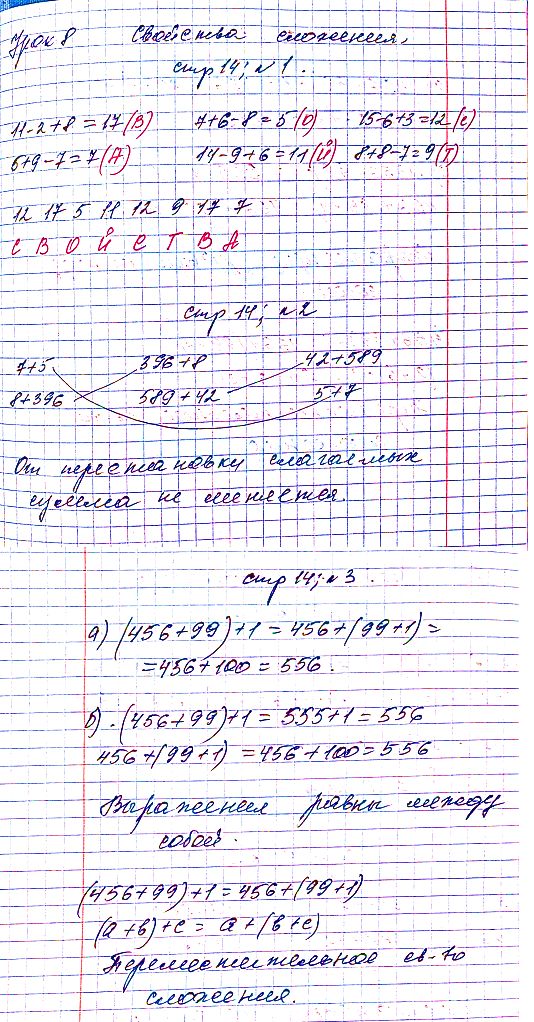 Урок 8 Свойства сложения.
стр 14; №1.
11-2+8=17(В) 7+6-8=5(О) 15-6+3=12(С)
6+9-7=7(А) 14-9+6=11(Й) 8+8-7=9(Т)
12 17 5 11 12 9 17 7
С В О Й С Т В А
стр 14; №2
7+5 396+8 42+589
8+396 589+42 5+7
От перестановки слагаемых
сумма не меняется.
стр 14; №3.
а) (456+99)+1=456+(99+1)=
=456+100=556.
б). (456+99)+1=555+1=556
456+(99+1)=456+100=556
Выражения равны между
собой.
(456+99)+1=456+(99+1)
(а+в)+с=а+(в+с)
Переместительное св-во
сложения.